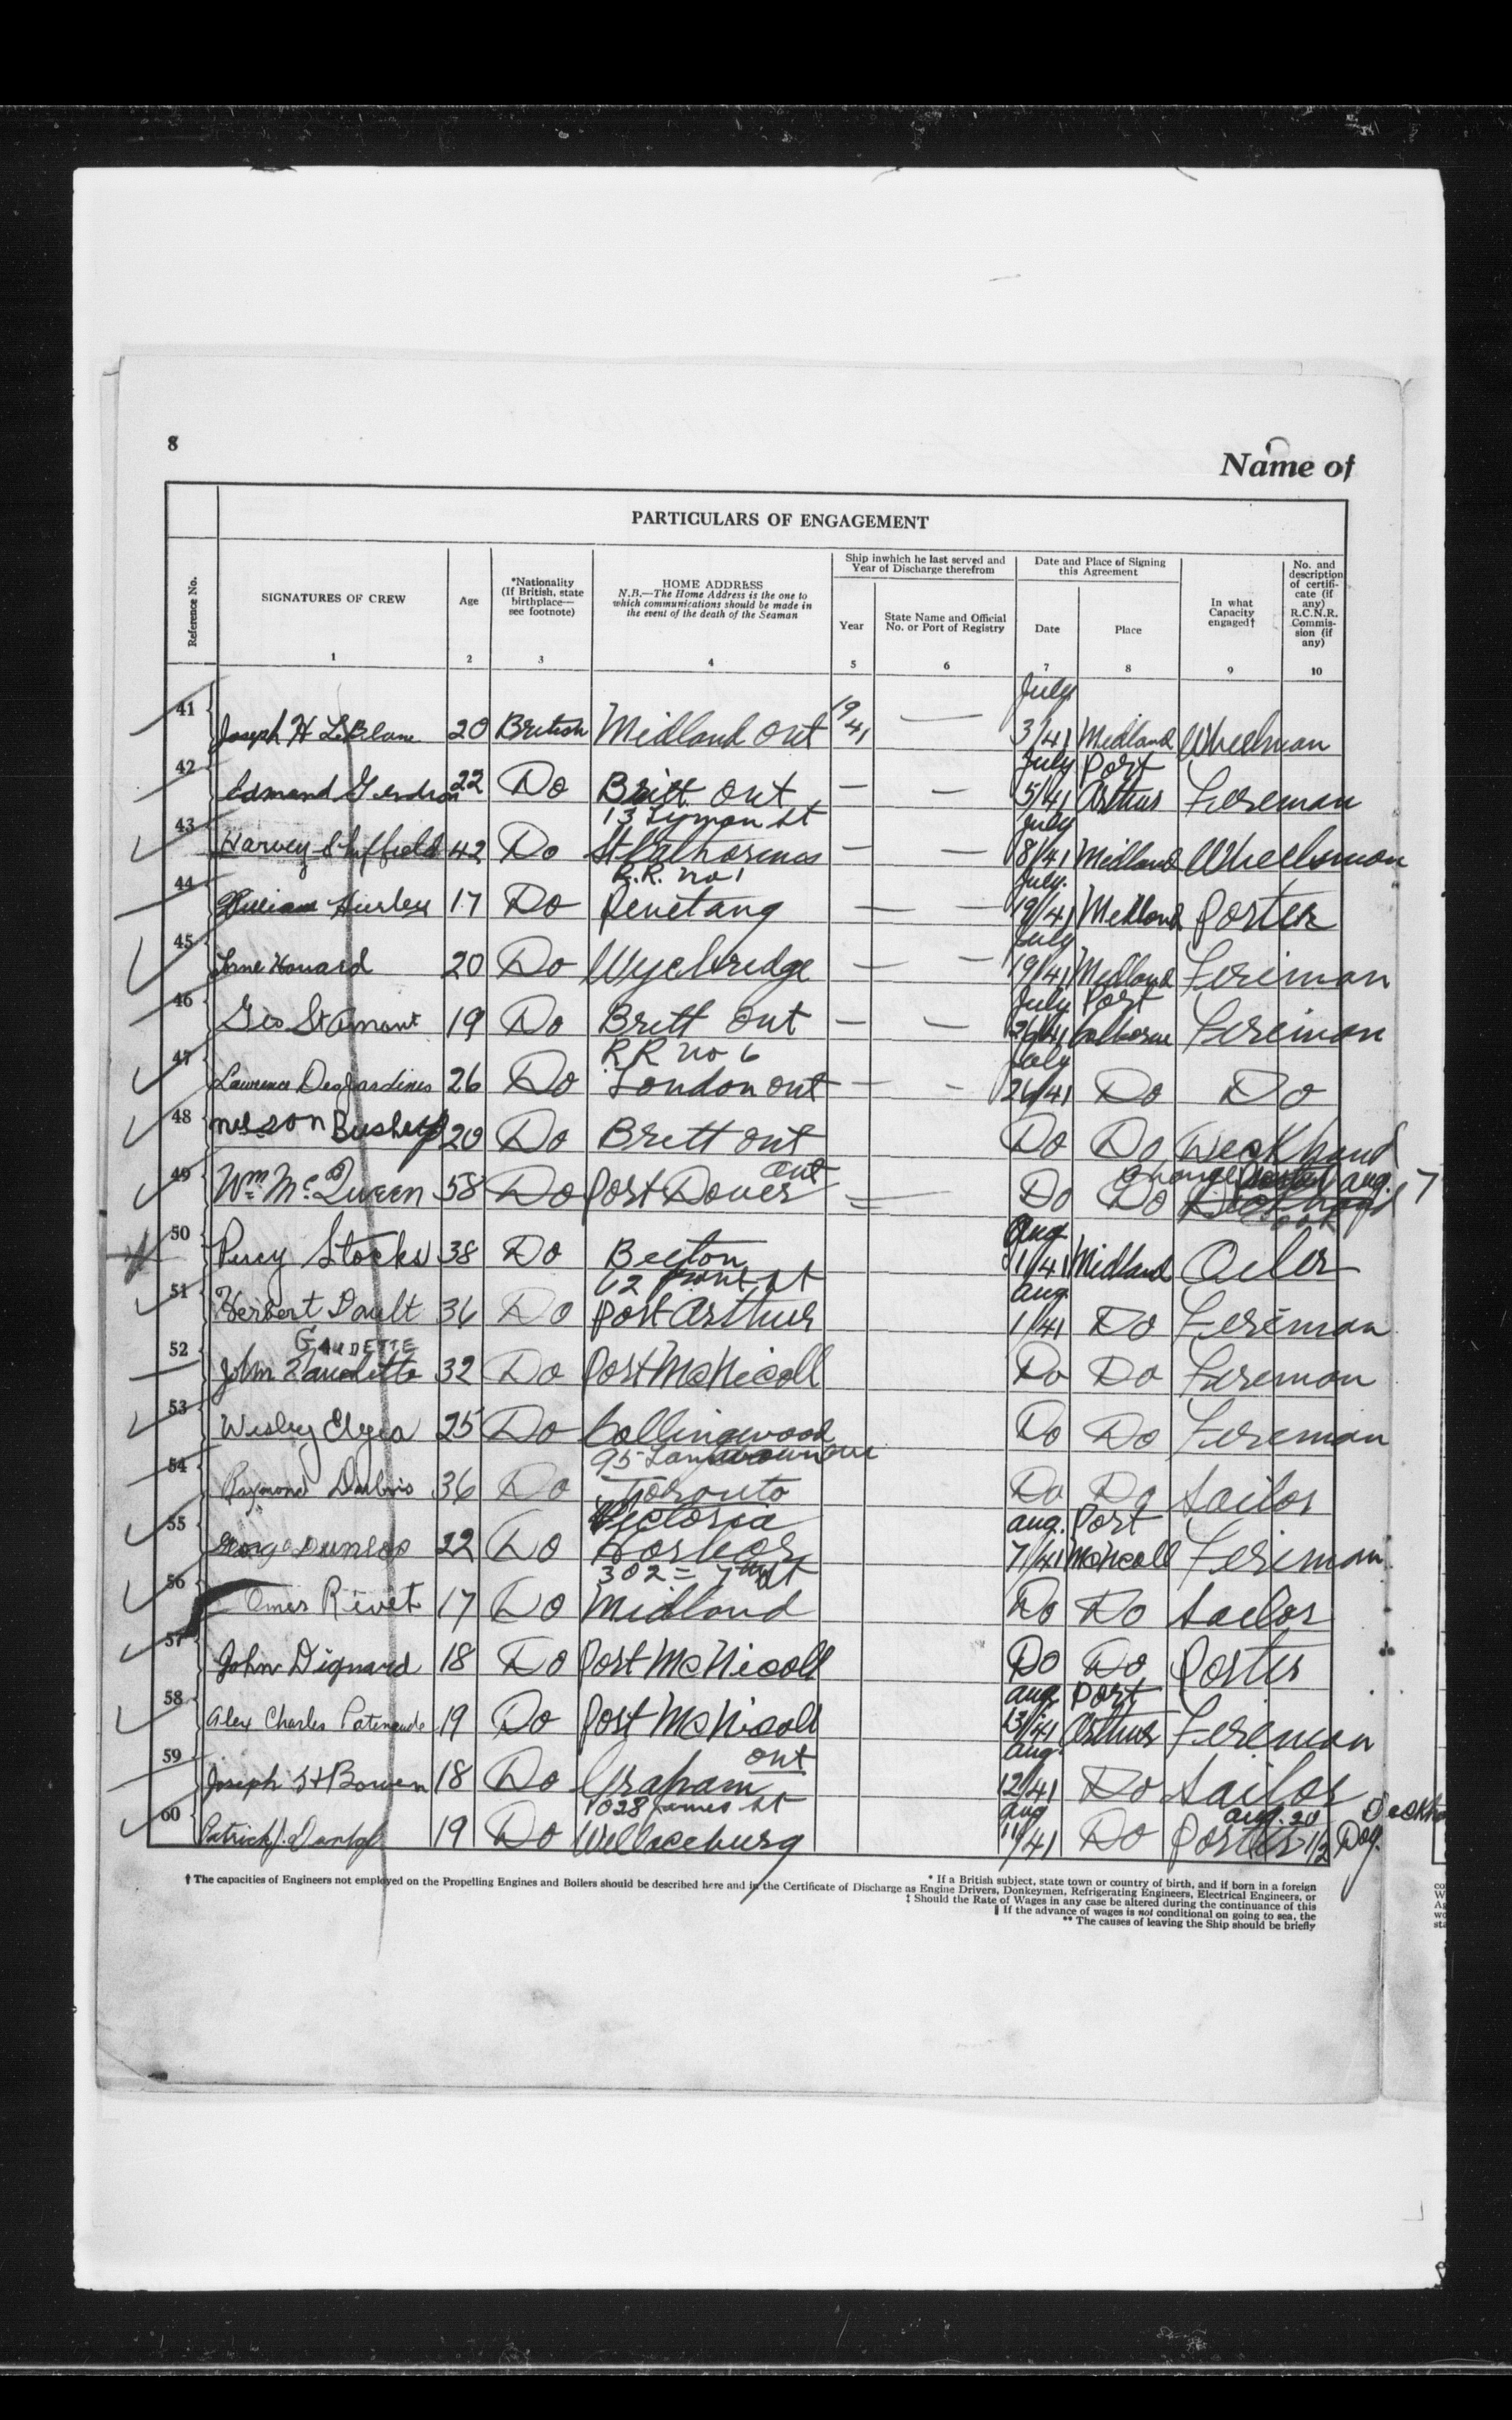 8
Name of
PARTICULARS OF ENGAGEMENT
Reference No.
SIGNATURES OF CREW
Age
*Nationality
(If British, state
birthplace—
see footnote)
HOME ADDRESS
N.B.—The Home Address is the one to
which communications should be made in
the event of the death of the Seaman
Ship in which he last served and
Year of Discharge therefrom
Year
State Name and Official
No. or Port of Registry
Date and Place of Signing
this Agreement
Date
Place
In what
Capacity
engaged†
No. and
description
of certifi-
cate (if
any)
R.C.N.R.
Commis-
sion (if
any)
1 2 3 4 5 6 7 8 9 10
July
41 Joseph H LeBlanc 20 British Midland Ont 19/41 — 3/41 Midland Wheelman
July Port
42 Edmond Gendron 22 Do Britt Ont — — 5/41 Arthur Fireman
13 Lyman St July
43 Harvey 42 Do St Catharines — — 18/41 Midland Wheelsman
R.R. No 1 July
44 William 17 Do Penetang — — 19/41 Midland Porter
July
45 20 Do Wyebridge — — 19/41 Midland Fireman
July Port
46 Geo St Amant 19 Do Britt Ont — — 26/41 Colborne Fireman
R R No 6 July
47 Lawrence Desjardines 26 Do London Ont — — 26/41 Do Do
48 Nelson 20 Do Britt Ont Do Do Deckhand
Ont Change Aug. 7
49 Wm Mc Queen 58 Do Port Dover Do Do
Cook
Aug
50 Percy Stocks 38 Do Beeton 1/41 Midland Oiler
62 Front St Aug.
51 Herbert Dault 36 Do Port Arthur 1/41 Do Fireman
GAUDETTE
52 John Gaudette 32 Do Port McNicoll Do Do Fireman
53 Wesley 25 Do Collingwood Do Do Fireman
95 Lansdowne Ave
54 Raymond 36 Do Toronto Do Do Sailor
Victoria Aug. Port
55 George Dunlop 22 Do Harbor 7/41 McNicoll Fireman
302 = 7th St
56 Omer Rivet 17 Do Midland Do Do Sailor
57 John Dignard 18 Do Port McNicoll Do Do Porter
Aug Port
58 Alex Charles Patenaude 19 Do Port McNicoll 13/41 Arthur Fireman
Ont Aug.
59 Joseph 18 Do Graham 12/41 Do Sailor
1028 James St Aug Aug. 20
60 Patrick J. 19 Do Wallaceburg 11/41 Do Porter 1/2 Day.
† The capacities of Engineers not employed on the Propelling Engines and Boilers should be described here and in the Certificate of Discharge as Engine Drivers, Donkeymen, Refrigerating Engineers, Electrical Engineers, or
* If a British subject, state town or country of birth, and if born in a foreign
‡ Should the Rate of Wages in any case be altered during the continuance of this
‖ If the advance of wages is not conditional on going to sea, the
** The causes of leaving the Ship should be briefly